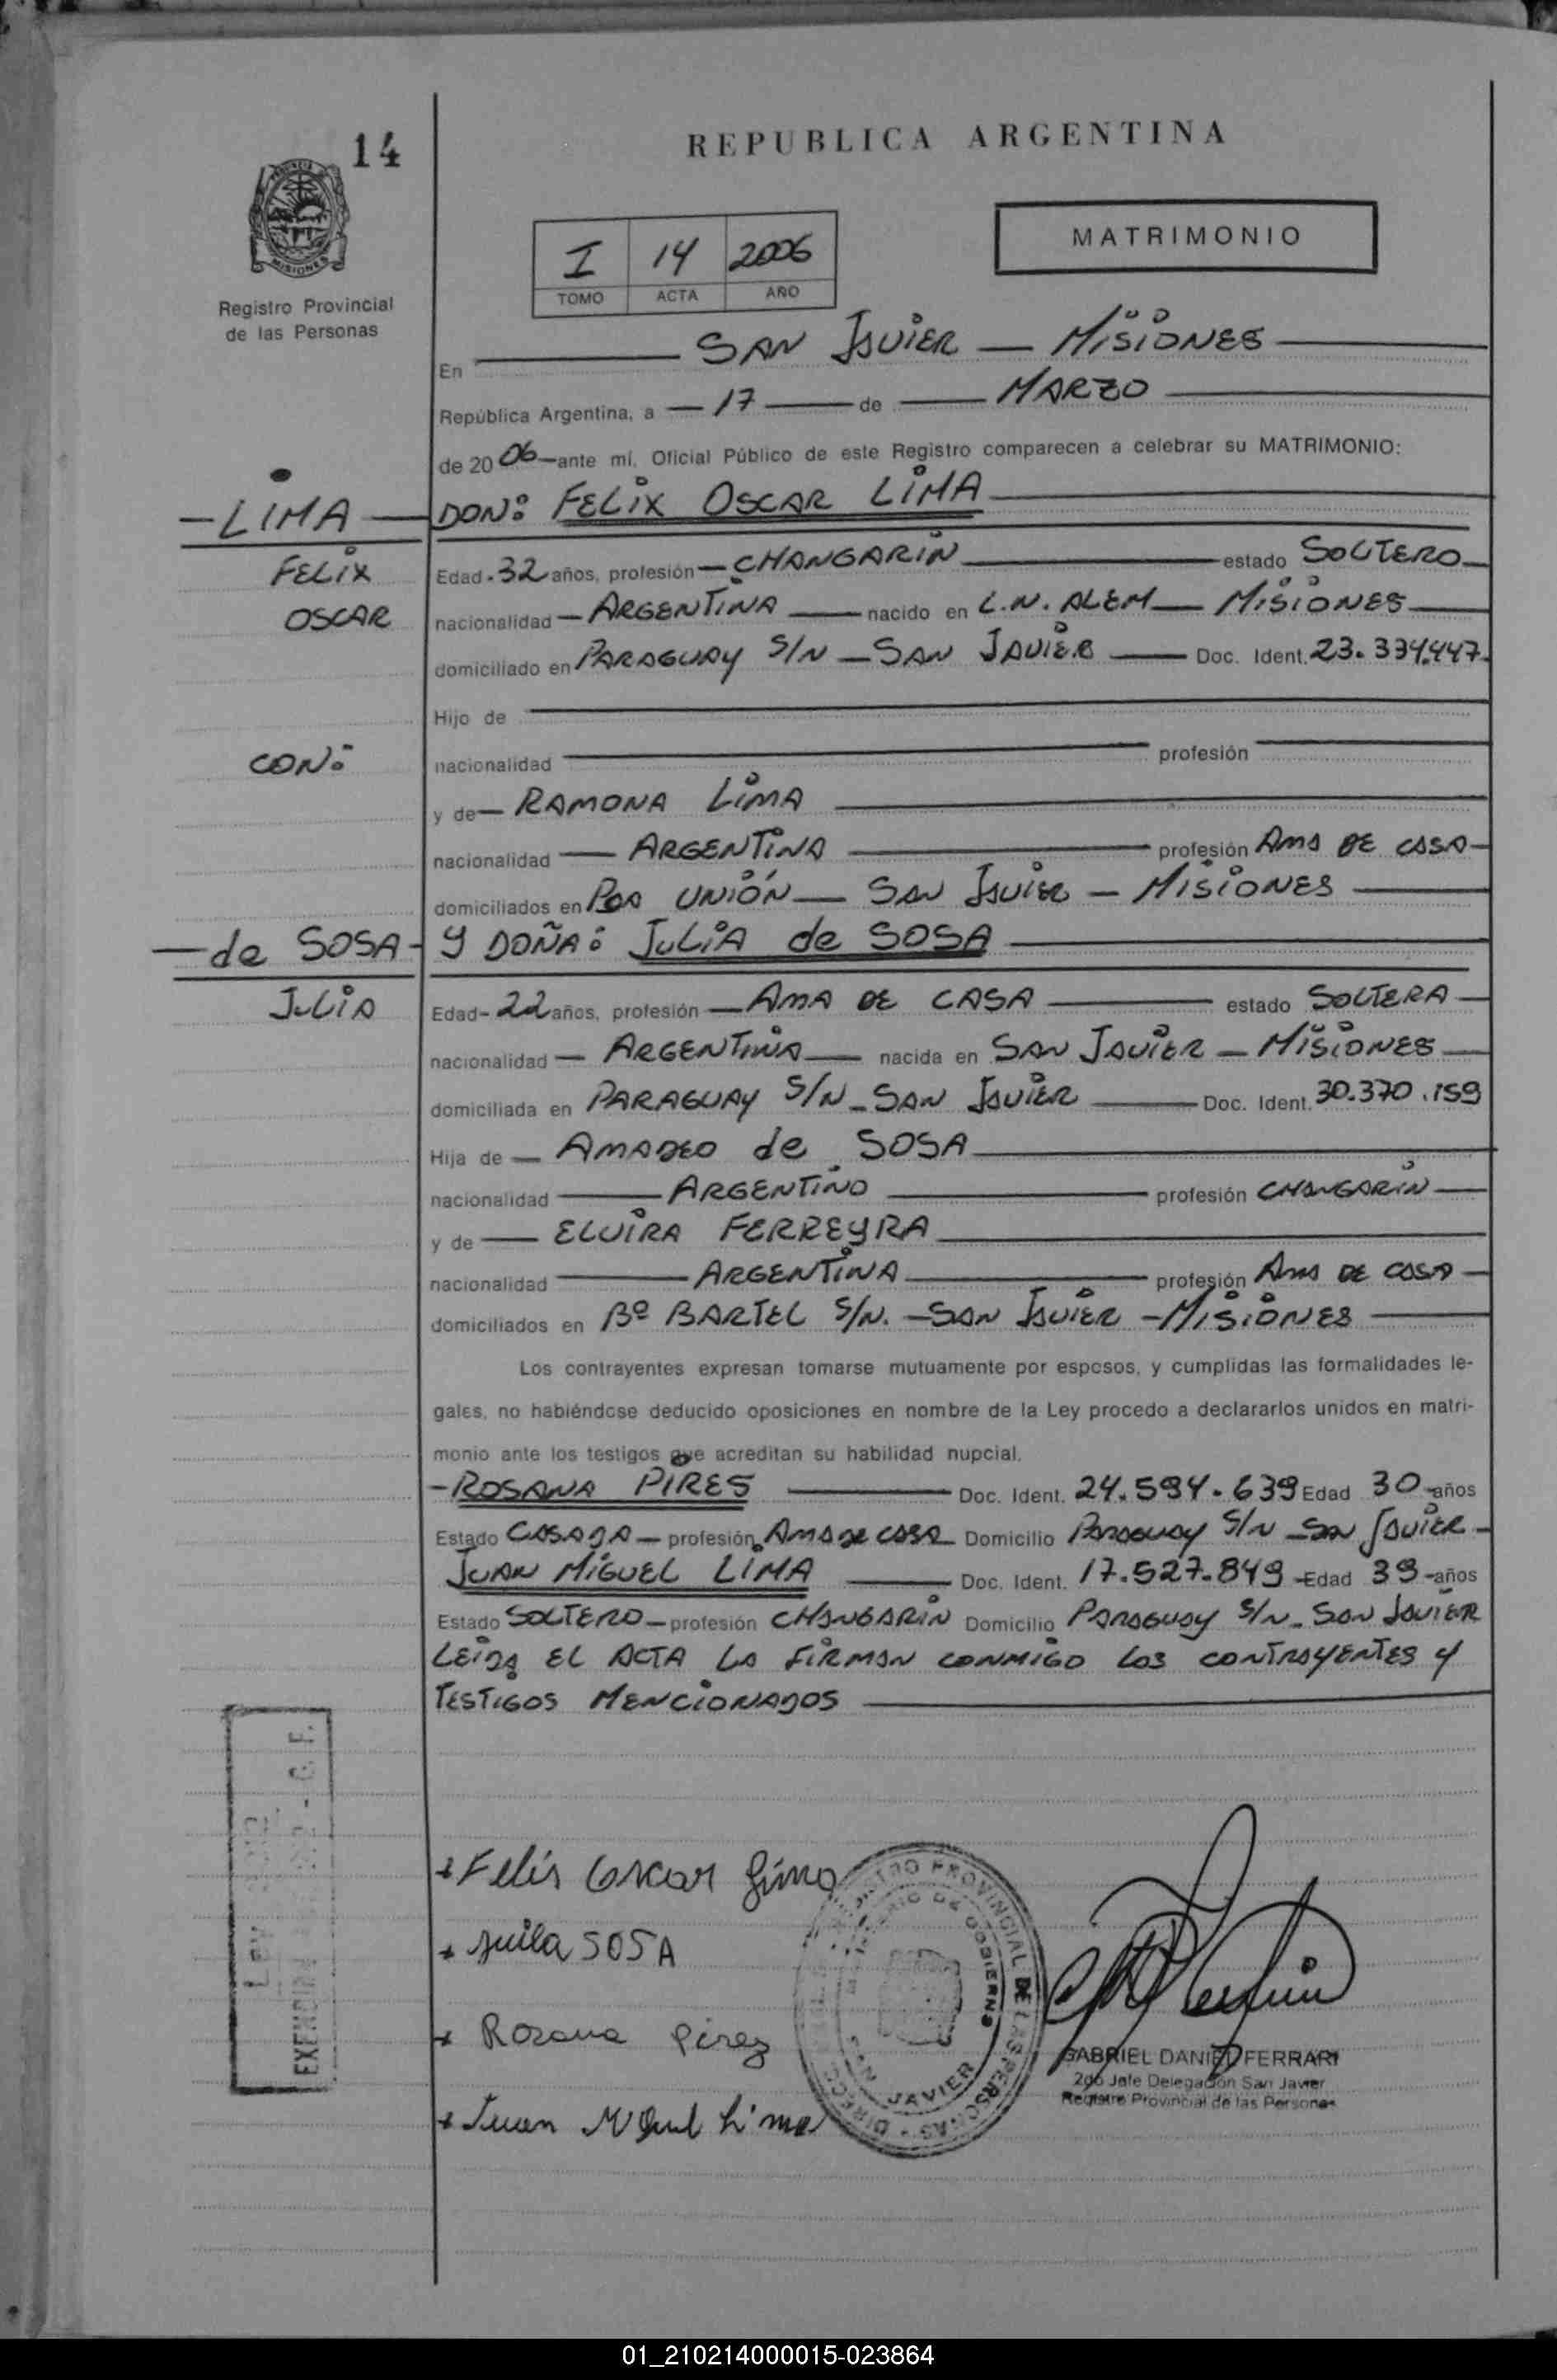 14
REPUBLICA ARGENTINA
MISIONES
Registro Provincial
de las Personas
I 14 2006
TOMO ACTA AÑO
MATRIMONIO
En SAN JAVIER — MISIONES
República Argentina, a — 17 — de — MARZO
de 2006 — ante mí, Oficial Público de este Registro comparecen a celebrar su MATRIMONIO:
— LIMA — DON: FELIX OSCAR LIMA
FELIX Edad - 32 años, profesión — CHANGARIN — estado SOLTERO —
OSCAR nacionalidad — ARGENTINA — nacido en L.N. ALEM — MISIONES —
domiciliado en PARAGUAY S/N — SAN JAVIER — Doc. Ident. 23.334.447-
Hijo de
CON: nacionalidad — profesión
y de — RAMONA LIMA
nacionalidad — ARGENTINA — profesión AMA DE CASA —
domiciliados en UNIÓN — SAN JAVIER — MISIONES
— de SOSA - Y DOÑA: JULIA de SOSA
JULIA Edad - 22 años, profesión — AMA DE CASA — estado SOLTERA —
nacionalidad — ARGENTINA — nacida en SAN JAVIER — MISIONES —
domiciliada en PARAGUAY S/N - SAN JAVIER — Doc. Ident. 30.370.159
Hija de — AMADEO de SOSA
nacionalidad — ARGENTINO — profesión CHANGARIN —
y de — ELVIRA FERREYRA
nacionalidad — ARGENTINA — profesión AMA DE CASA —
domiciliados en Bº BARTEL S/N. — SAN JAVIER — MISIONES
Los contrayentes expresan tomarse mutuamente por esposos, y cumplidas las formalidades le-
gales, no habiéndose deducido oposiciones en nombre de la Ley procedo a declararlos unidos en matri-
monio ante los testigos que acreditan su habilidad nupcial.
- ROSANA PIRES — Doc. Ident. 24.594.639 Edad 30 - años
Estado CASADA — profesión AMA DE CASA Domicilio PARAGUAY S/N - SAN JAVIER -
JUAN MIGUEL LIMA — Doc. Ident. 17.527.849 - Edad 39 - años
Estado SOLTERO — profesión CHANGARIN Domicilio PARAGUAY S/N - SAN JAVIER
LEIDA EL ACTA LA FIRMAN CONMIGO LOS CONTRAYENTES Y
TESTIGOS MENCIONADOS
Ley
EXENCION
+ Felix Oscar Lima
+ Juila SOSA
+ Rosana Pirez
+ Juan Miguel Lima
REGISTRO PROVINCIAL DE LAS PERSONAS
MINISTERIO DE GOBIERNO
SAN JAVIER
GABRIEL DANIEL FERRARI
2do Jefe Delegación San Javier
Registro Provincial de las Personas
01_210214000015-023864